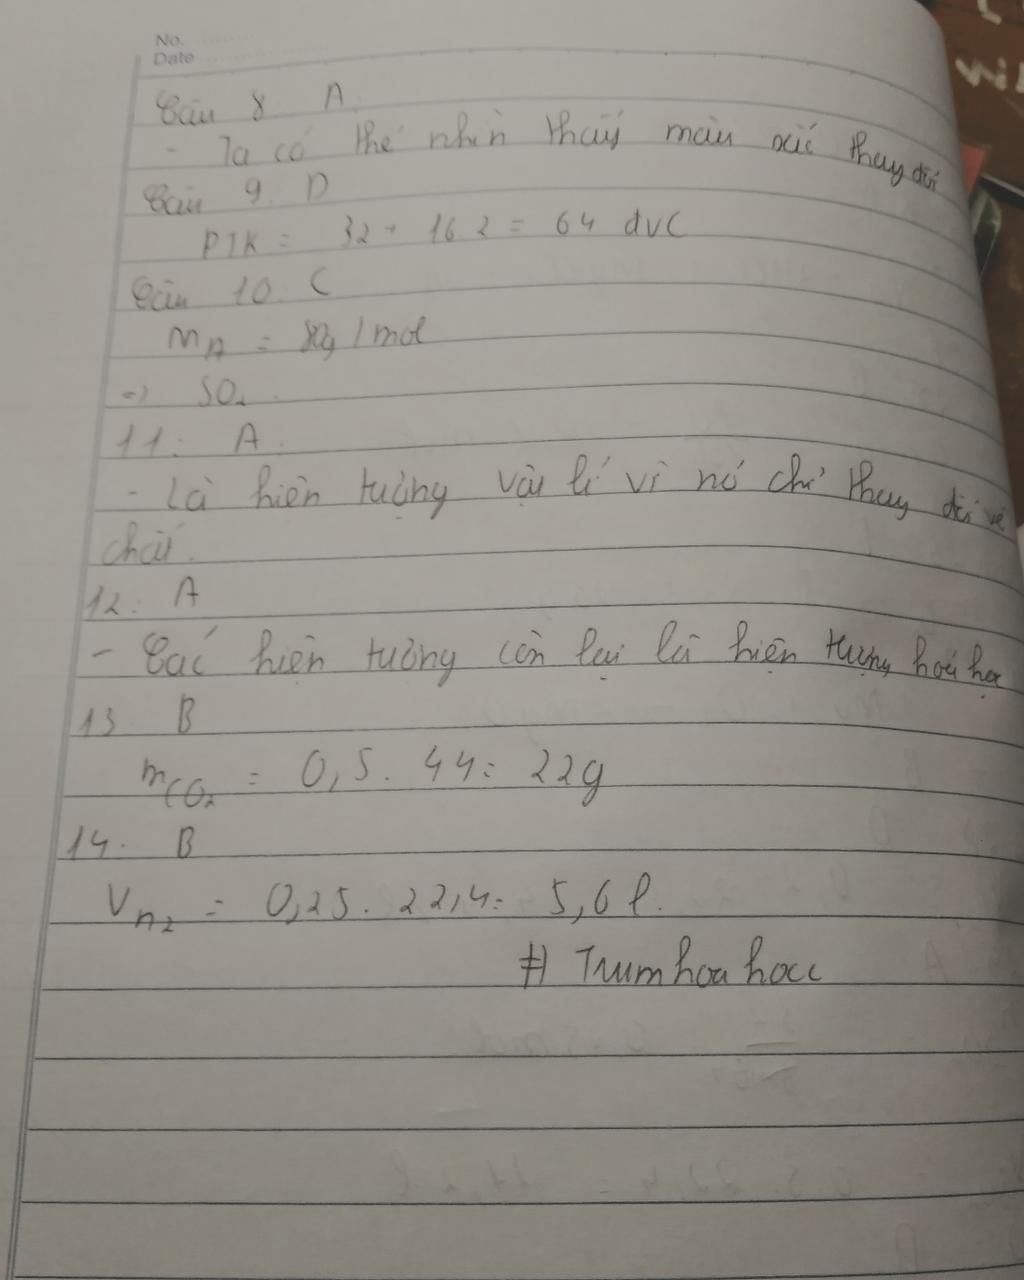 No.
Date
Câu 8. A
- Ta có thể nhìn thấy màu sắc thay đổi
Câu 9. D
PTK = 32 + 16.2 = 64 đvC
Câu 10. C
MA = g/mol
=> SO2
11. A.
- Là hiện tượng vật lí vì nó chỉ thay đổi về
chất.
12. A
- Các hiện tượng còn lại là hiện tượng hoá học
13. B
mCO2 = 0,5. 44= 22g
14. B
Vn2 = 0,25. 22,4= 5,6 l.
# Trumhoahocc